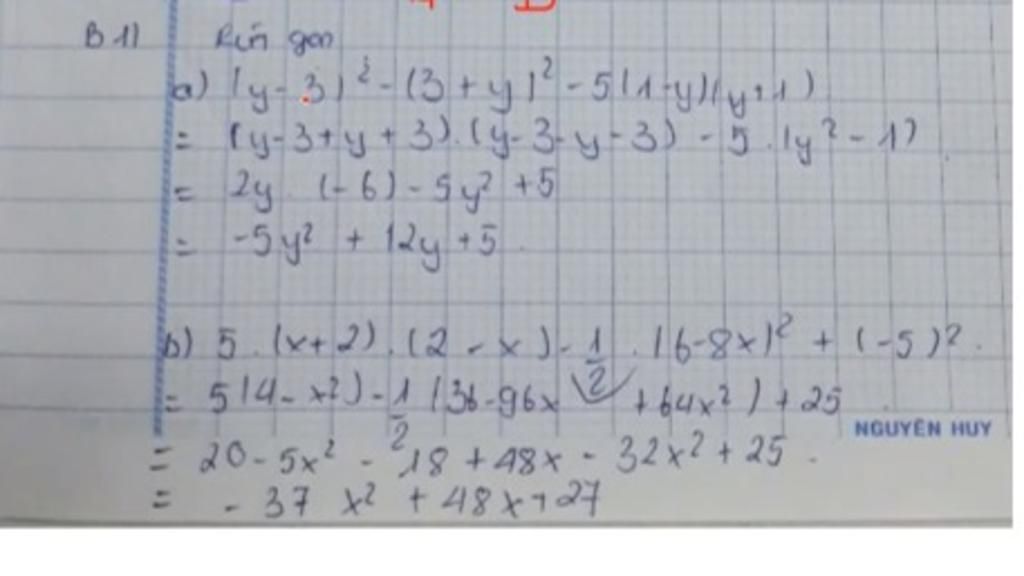 B 1) Rút gọn
a) (y-3)² - (3+y)² - 5(1-y)(y+1)
= (y-3+y+3).(y-3-y-3) - 5.(y²-1)
= 2y.(-6) - 5y² +5
= -5y² + 12y +5.
b) 5.(x+2).(2-x) - 1/2.(6-8x)² + (-5)².
= 5(4-x²) - 1/2(36-96x +64x²) + 25
NGUYÊN HUY
= 20 - 5x² - 18 + 48x - 32x² + 25.
= -37x² + 48x + 27